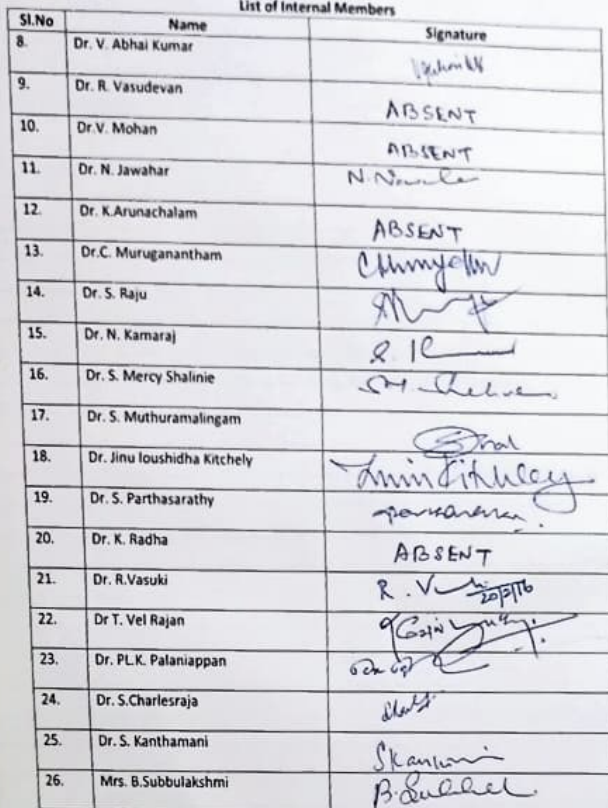 List of Internal Members
Sl.No Name Signature
8. Dr. V. Abhai Kumar
9. Dr. R. Vasudevan ABSENT
10. Dr.V. Mohan ABSENT
11. Dr. N. Jawahar
12. Dr. K.Arunachalam ABSENT
13. Dr.C. Muruganantham
14. Dr. S. Raju
15. Dr. N. Kamaraj
16. Dr. S. Mercy Shalinie
17. Dr. S. Muthuramalingam
18. Dr. Jinu loushidha Kitchely
19. Dr. S. Parthasarathy
20. Dr. K. Radha ABSENT
21. Dr. R.Vasuki R. V
22. Dr T. Vel Rajan
23. Dr. PL.K. Palaniappan
24. Dr. S.Charlesraja
25. Dr. S. Kanthamani
26. Mrs. B.Subbulakshmi